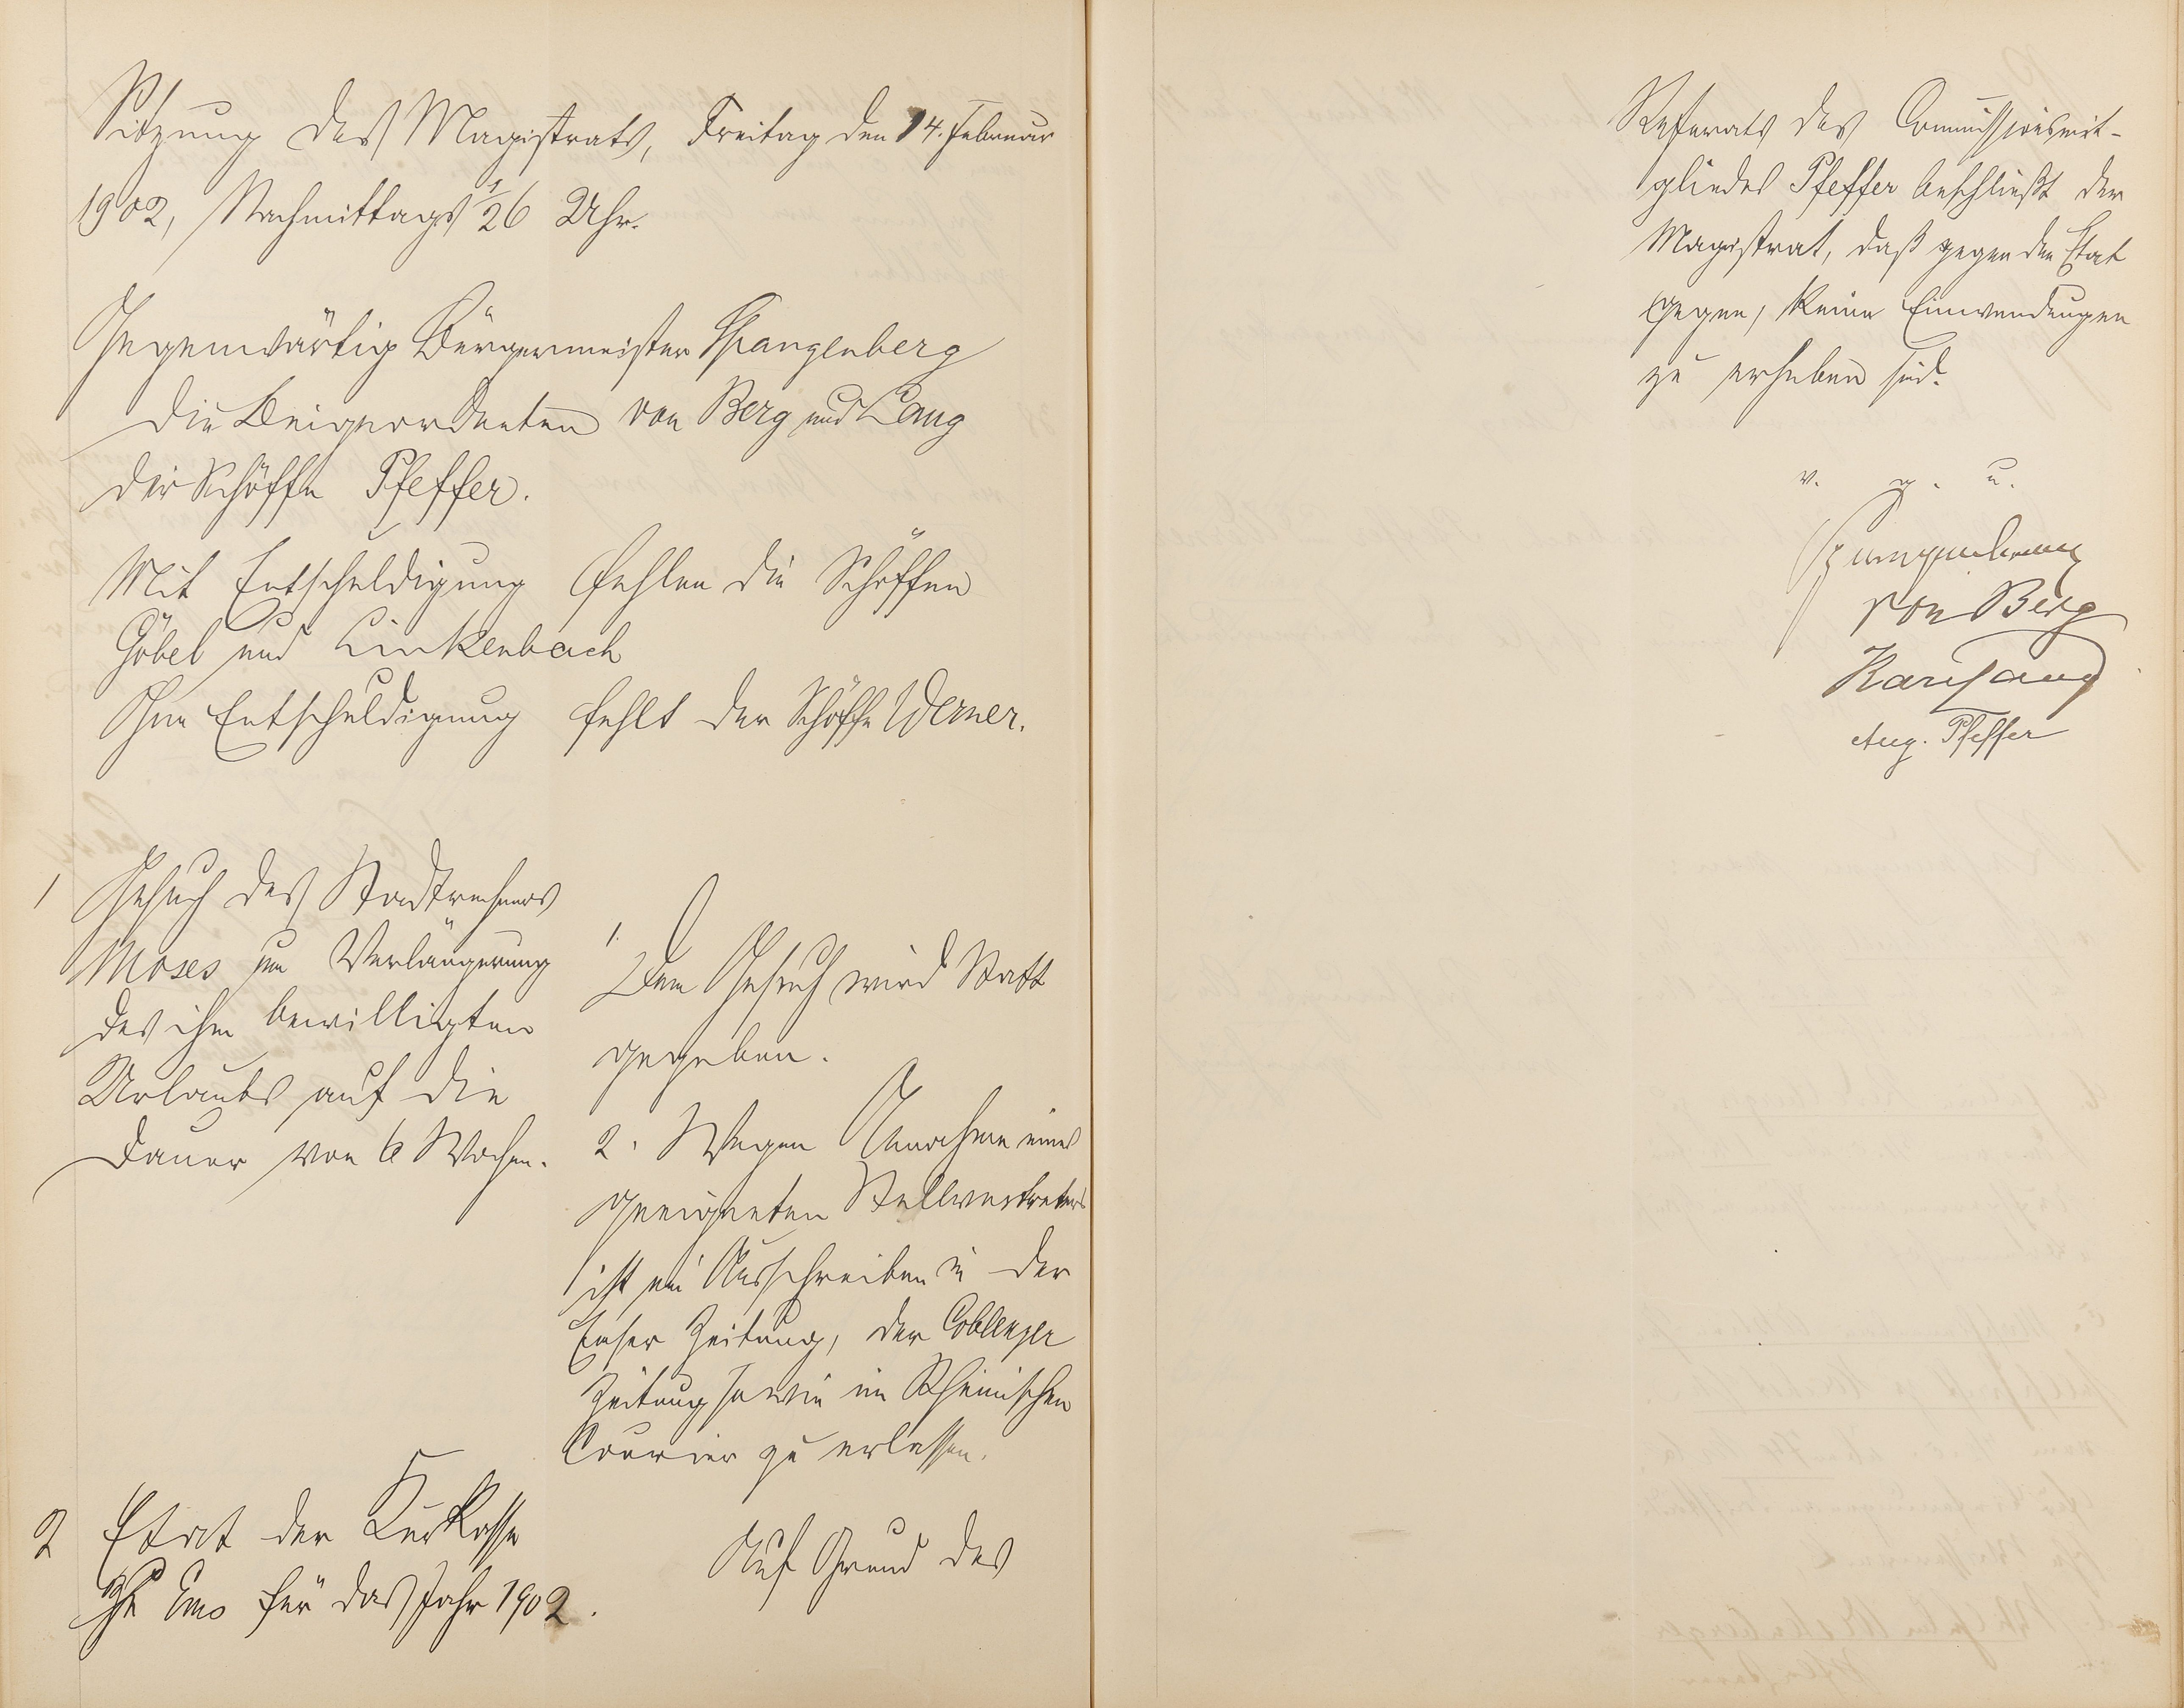 Sitzung des Magistrats, Freitag den 14. Februar
1902, Nachmittags 1/26 Uhr.
Gegenwärtig Bürgermeister Spangenberg
die Beigeordneten von Berg und Lang
der Schöffe Pfeffer.
Mit Entschuldigung fehlen die Schöffen
Göbel und Linkenbach
Ohne Entschuldigung fehlt der Schöffe Werner.
1 Gesuch des Stadtrechners
Moses um Verlängerung
des ihm bewilligten
Urlaubs auf die
Dauer von 6 Wochen.
1.
Dem Gesuch wird Statt
gegeben.
2. Wegen Annahme eines
geeigneten Stellvertreters
ist ein Ausschreiben in der
Emser Zeitung, der Coblenzer
Zeitung sowie im Rheinischen
Courier zu erlassen.
2 Etat der Kurkasse
Ems für das Jahr 1902.
Auf Grund des
Referats des Commissionsmit-
gliedes Pfeffer beschließt der
Magistrat, daß gegen den Etat
keine Einwendungen
zu erheben sind.
v. g. u.
Spangenberg
von Berg
Karl Lang
Aug. Pfeffer